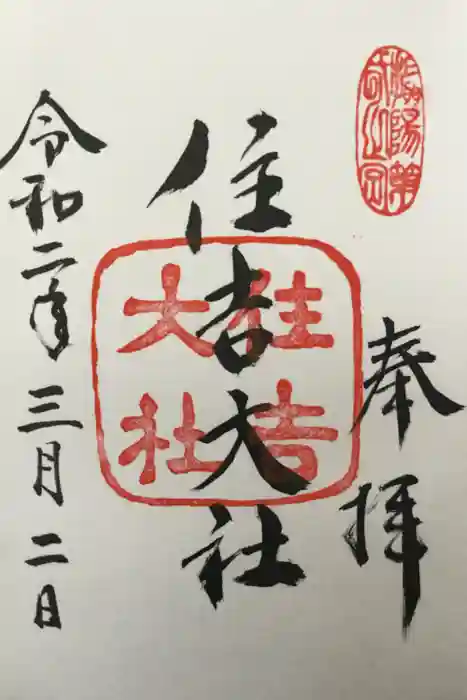 奉拝
住吉大社
住吉大社
令和二年三月二日